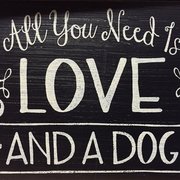 All You Need Is
LOVE
AND A DOG